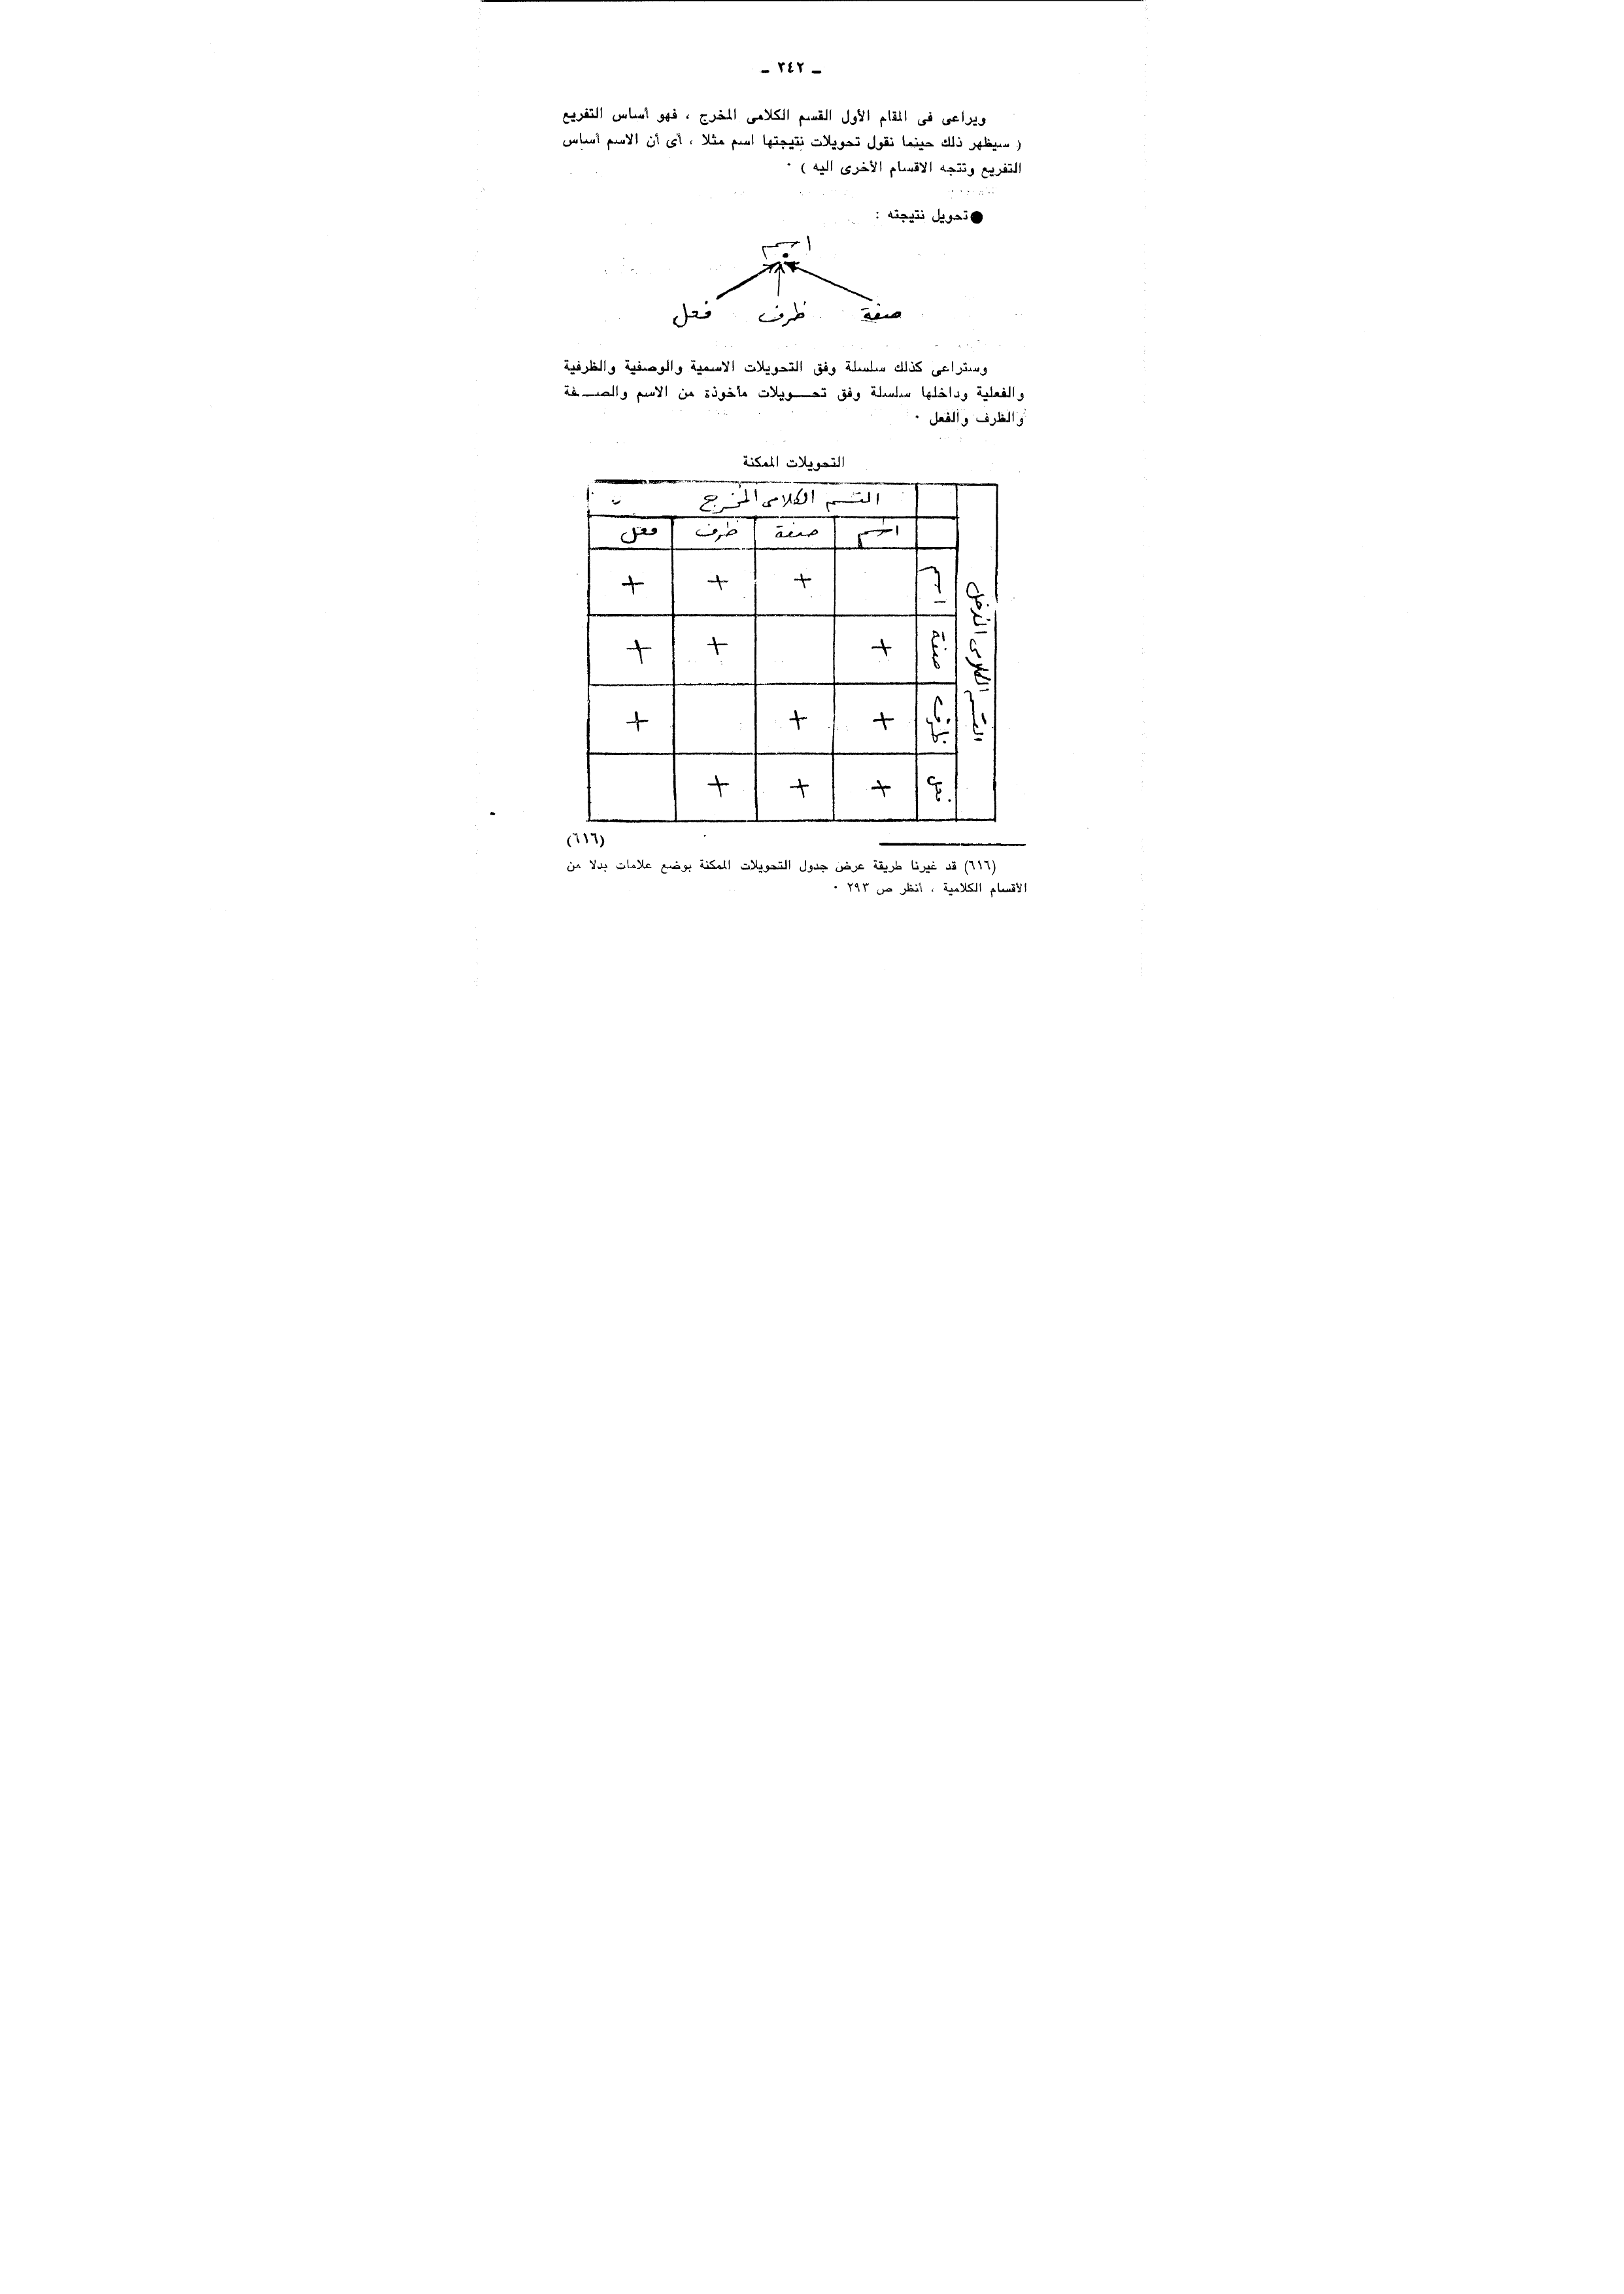 ـ ٣٤٢ ـ
ويراعى فى المقام الأول القسم الكلامى المخرج ، فهو أساس التفريع
( سيظهر ذلك حينما نقول تحويلات نتيجتها اسم مثلا ، أى أن الاسم أساس
التفريع وتتجه الاقسام الأخرى اليه ) ٠
● تحويل نتيجته :
اسم
صفة ظرف فعل
وستراعى كذلك سلسلة وفق التحويلات الاسمية والوصفية والظرفية
والفعلية وداخلها سلسلة وفق تحـــويلات مأخوذة من الاسم والصـــفة
والظرف والفعل ٠
التحويلات الممكنة
القسم الكلامى المخرج
اسم صفة ظرف فعل
القسم الكلامى المدخل
اسم + + +
صفة + + +
ظرف + + +
فعل + + +
(٦١٦)
(٦١٦) قد غيرنا طريقة عرض جدول التحويلات الممكنة بوضع علامات بدلا من
الأقسام الكلامية ، أنظر ص ٢٩٣ ٠